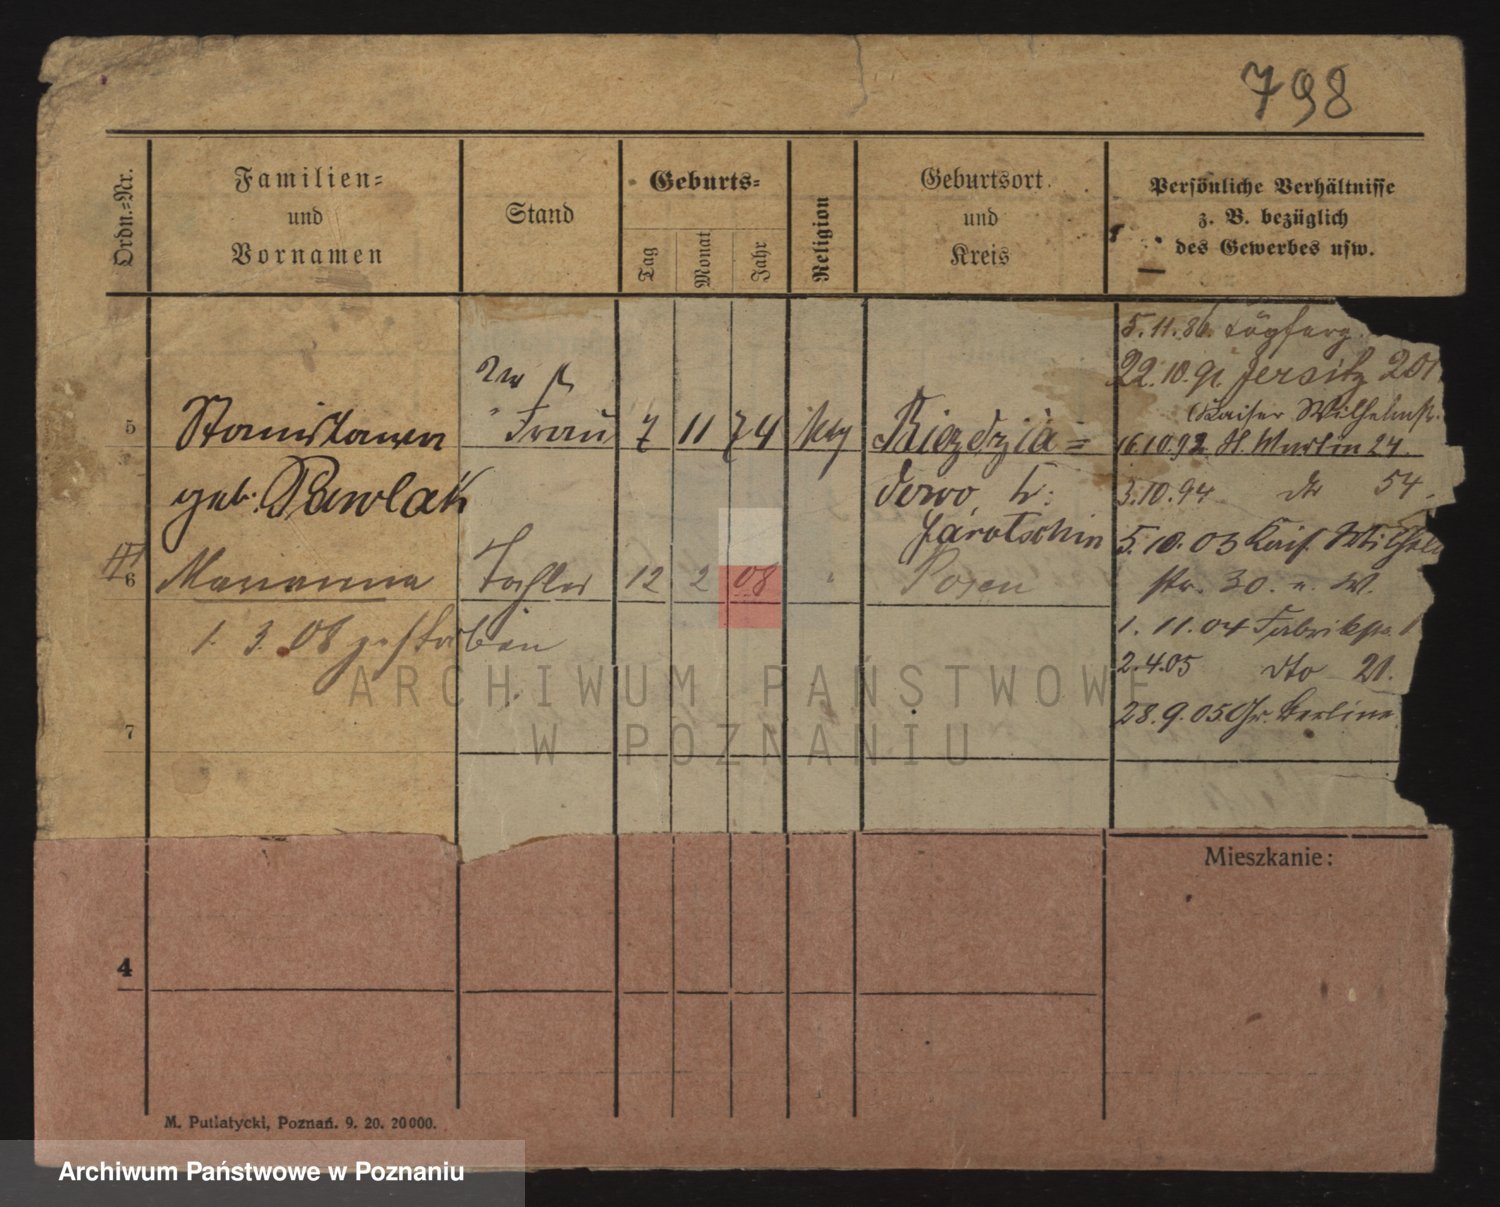 798
Ordn.=Nr.
Familien=
und
Vornamen
Stand
Geburts=
Tag
Monat
Jahr
Religion
Geburtsort
und
Kreis
Persönliche Verhältnisse
z. B. bezüglich
des Gewerbes usw.
5
Stanislawa
geb. Pawlak
Frau
7
11
74
Biezdzia=
dowo Kr:
Jarotschin
6
Marianna
Tochter
12
2
08
"
Posen
1. 3. 08 gestorben
7
5. 11. 86.
22. 10. 91. Jersitz 201
Kaiser Wilhelmst.
16.10.92 St. Martin 24.
3.10.94 dto 54.
5. 10. 03 Kais. Wilhelm
str. 30.
1. 11. 04 Fabrikstr.
2.4.05 dto 21.
28. 9. 05 Gr. Berliner
Mieszkanie:
4
M. Putiatycki, Poznań. 9. 20. 20000.
ARCHIWUM PAŃSTWOWE
W POZNANIU
Archiwum Państwowe w Poznaniu